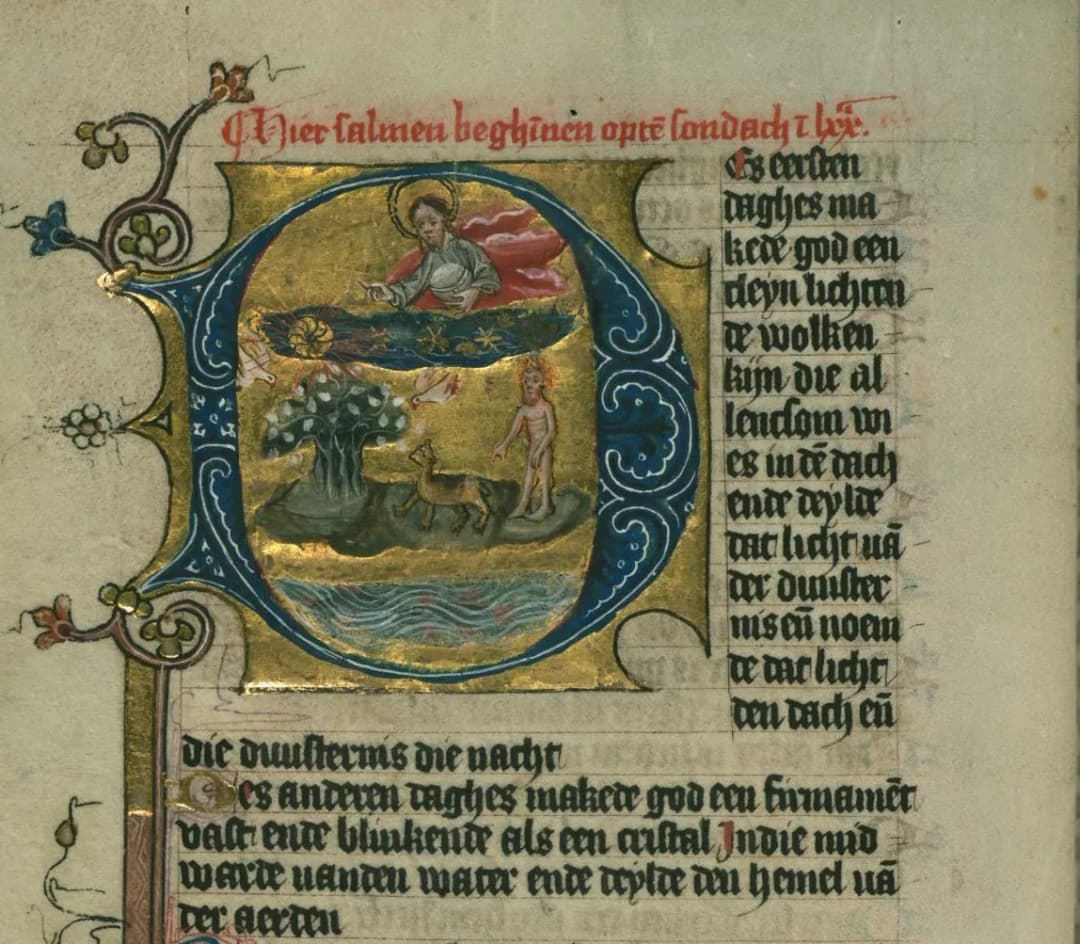 Hier salmen beghīnen optē sondach ī lxx.
Es eersten
daghes ma
kede god een
cleyn lichten
de wolken
kijn die al
lencsom vvi
es in dē dach
ende deylde
dat licht uā
der duuster
nis eū noem
de dat licht
den dach eū
die duusternis die nacht
Des anderen daghes makede god een firmamēt
vast ende blinkende als een cristal Indie mid
warde uanden water ende deylde den hemel uā
der aerden